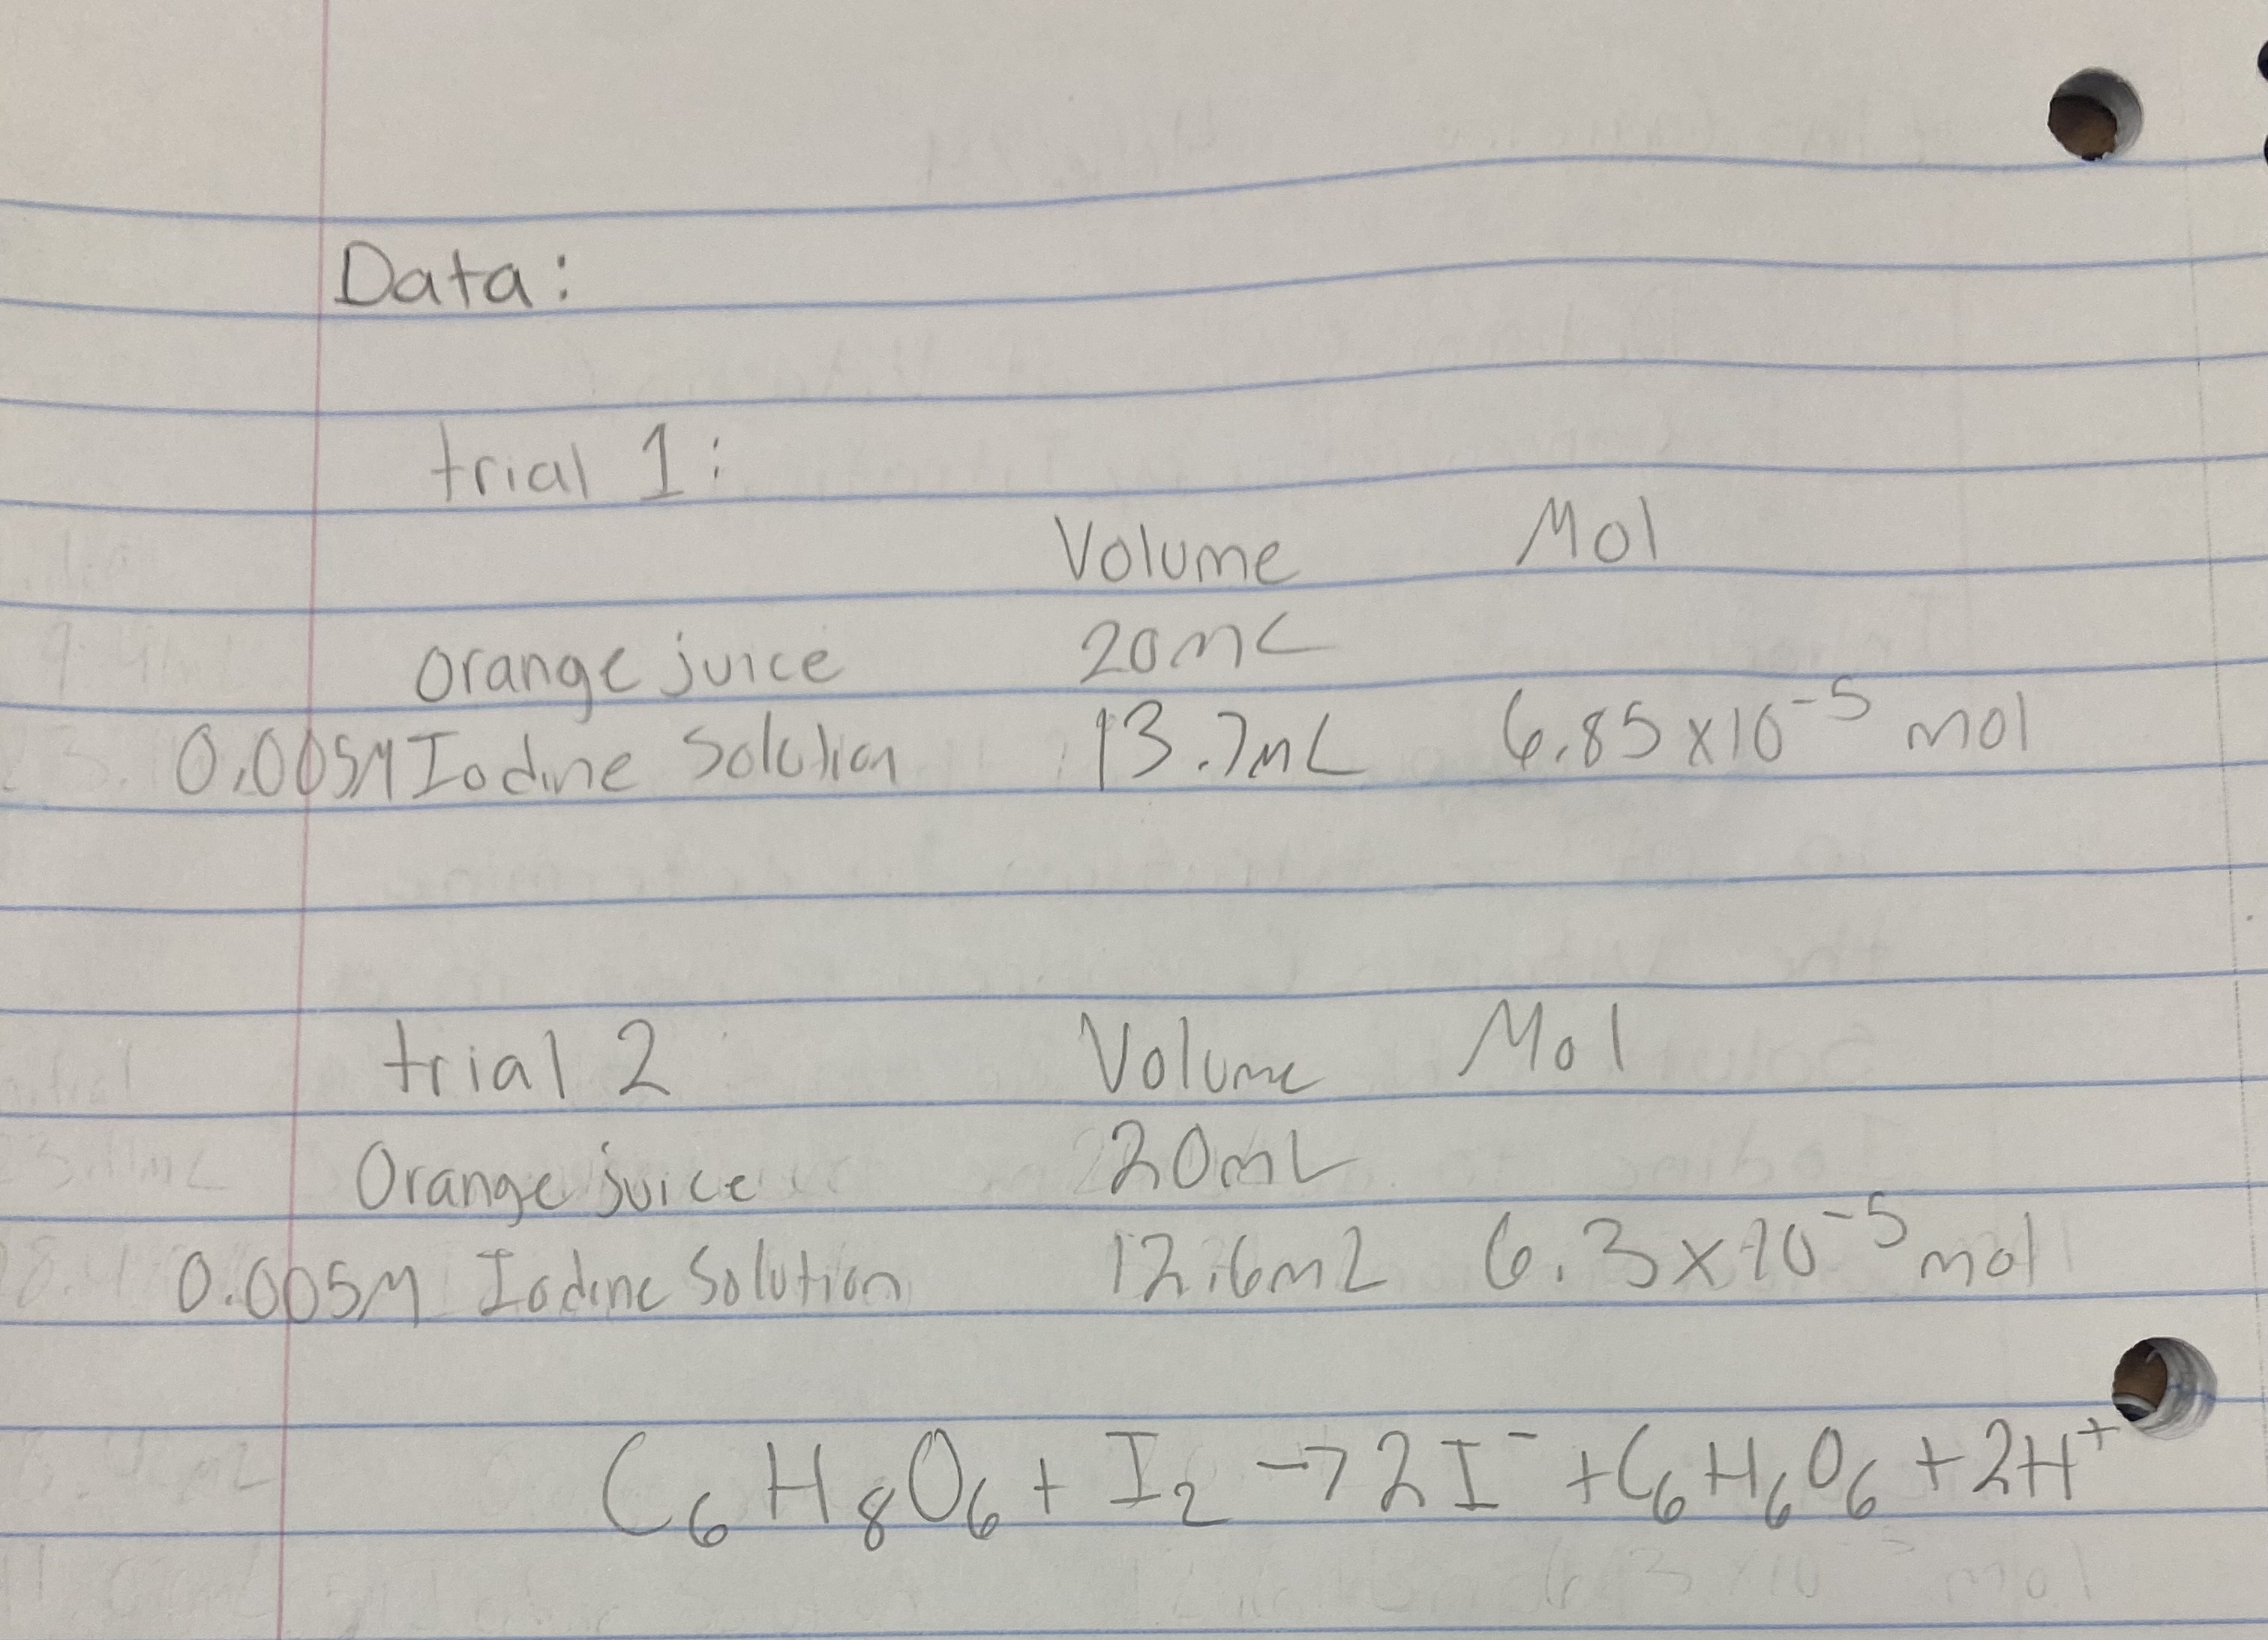 Data:
trial 1:
Volume Mol
orange juice 20mL
0.005M Iodine Solution 13.7mL 6.85x10⁻⁵ mol
trial 2 Volume Mol
Orange juice 20mL
0.005M Iodine Solution 12.6mL 6.3x10⁻⁵ mol
C₆H₈O₆ + I₂ → 2I⁻ + C₆H₆O₆ + 2H⁺